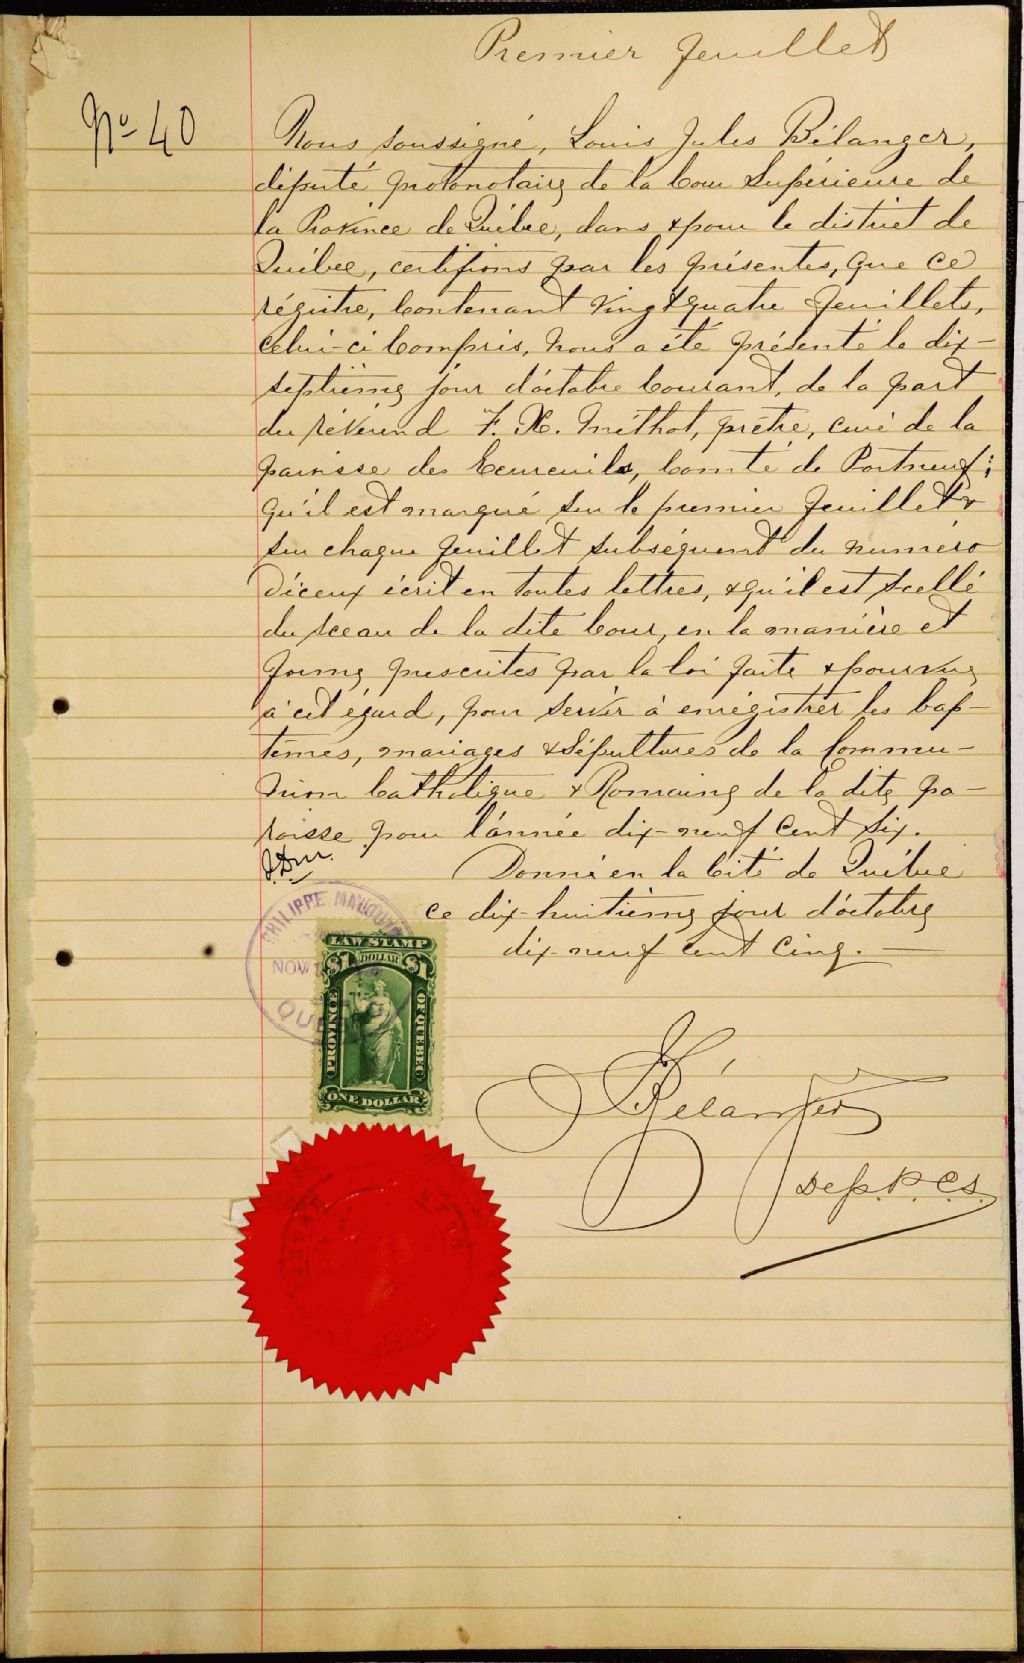 Premier feuillet
No 40
Nous soussigné, Louis Jules Bélanger,
député protonotaire de la Cour Supérieure de
la Province de Québec, dans & pour le district de
Québec, certifions par les présentes, que ce
régistre, contenant vingt quatre feuillets,
celui-ci compris, nous a été présenté le dix-
septième jour d'octobre courant, de la part
du révérend F. X. Méthot, prêtre, curé de la
paroisse des Ecureuils, Comté de Portneuf;
qu'il est marqué sur le premier feuillet &
sur chaque feuillet subséquent du numéro
d'iceux écrit en toutes lettres, & qu'il est scellé
du sceau de la dite Cour, en la manière et
forme prescrites par la loi faite & pourvue
à cet égard, pour servir à enrégistrer les bap-
têmes, mariages & sépultures de la Commu-
nion Catholique & Romaine de la dite pa-
roisse pour l'année dix-neuf cent six.
Donné en la Cité de Québec
ce dix-huitième jour d'octobre
dix-neuf cent cinq.—
PHILIPPE
NOV
QUEBEC
LAW STAMP
$1 DOLLAR $1
PROVINCE OF QUEBEC
ONE DOLLAR
Bélanger
Dep. P. C. S.